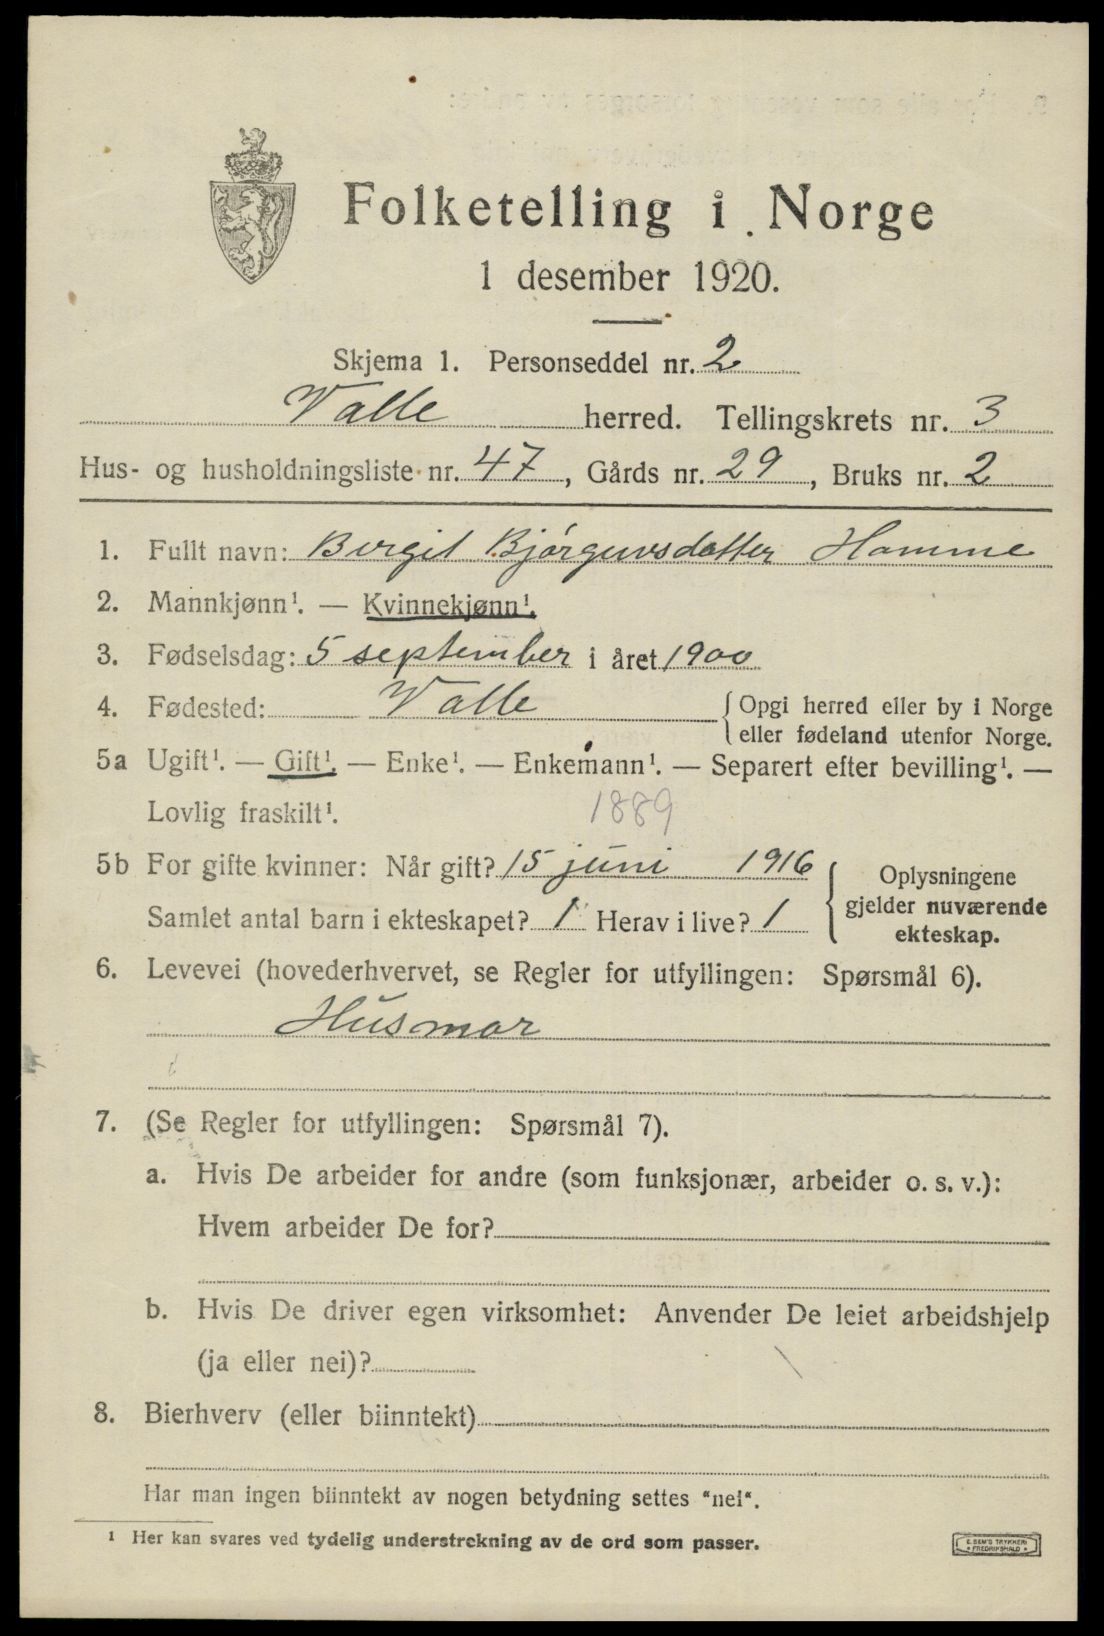 Folketelling i Norge
1 desember 1920.
Skjema 1. Personseddel nr. 2
Valle herred. Tellingskrets nr. 3
Hus- og husholdningsliste nr. 47, Gårds nr. 29, Bruks nr. 2
1. Fullt navn: Birgit Bjørguvsdatter Homme
2. Mannkjønn¹. — Kvinnekjønn¹.
3. Fødselsdag: 5 september i året 1900
4. Fødested: Valle {Opgi herred eller by i Norge
eller fødeland utenfor Norge.
5a Ugift¹. — Gift¹. — Enke¹. — Enkemann¹. — Separert efter bevilling¹. —
Lovlig fraskilt¹. 1889
5b For gifte kvinner: Når gift? 15 juni 1916
Samlet antal barn i ekteskapet? 1 Herav i live? 1
{Oplysningene
gjelder nuværende
ekteskap.
6. Levevei (hovederhvervet, se Regler for utfyllingen: Spørsmål 6).
Husmor
7. (Se Regler for utfyllingen: Spørsmål 7).
a. Hvis De arbeider for andre (som funksjonær, arbeider o. s. v.):
Hvem arbeider De for?
b. Hvis De driver egen virksomhet: Anvender De leiet arbeidshjelp
(ja eller nei)?
8. Bierhverv (eller biinntekt)
Har man ingen biinntekt av nogen betydning settes "nei".
¹ Her kan svares ved tydelig understrekning av de ord som passer.
E. SEM'S TRYKKERI
FREDRIKSHALD